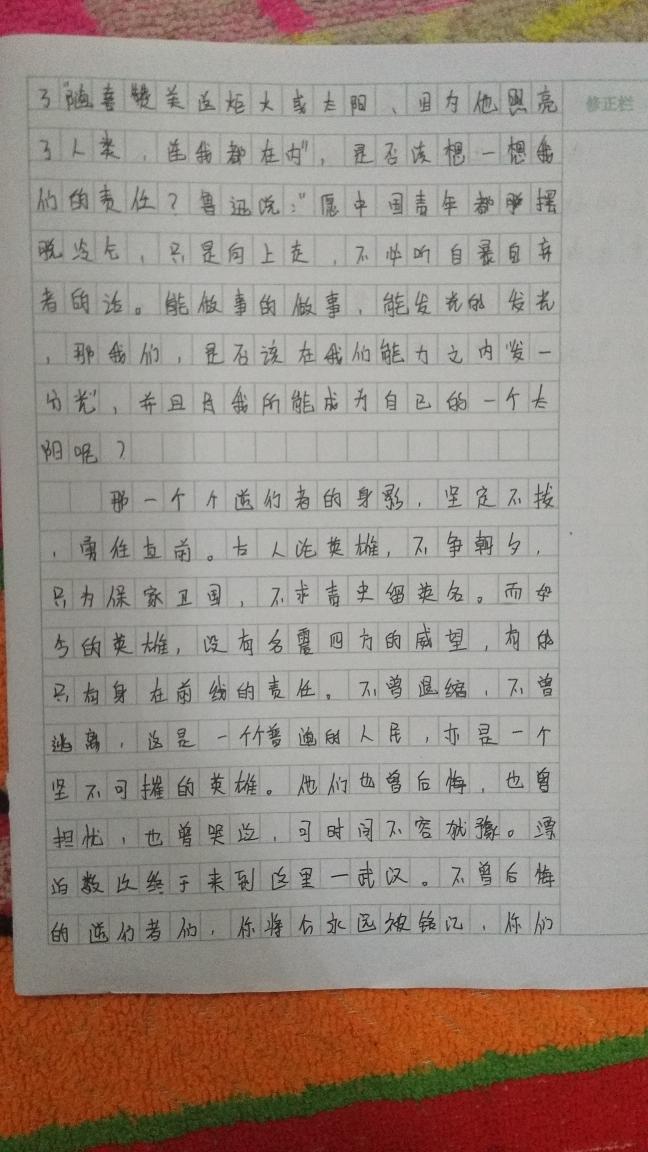 了"随喜赞美这炬火或太阳、因为他照亮
修正栏
了人类，连我都在内"，是否该想一想我
们的责任？鲁迅说："愿中国青年都摆
脱冷气，只是向上走，不必听自暴自弃
者的话。能做事的做事，能发光的发光
，那我们，是否该在我们能力之内"发一
分光"，并且尽我所能成为自己的一个太
阳呢？
那一个个逆行者的身影，坚定不拔
，勇往直前。古人论英雄，不争朝夕，
只为保家卫国，不求青史留英名。而如
今的英雄，没有名震四方的威望，有的
只有身在前线的责任。不曾退缩，不曾
逃离，这是一个个普通的人民，亦是一个
坚不可摧的英雄。他们也曾后悔，也曾
担忧，也曾哭泣，可时间不容犹豫。漂
泊数次终于来到这里一武汉。不曾后悔
的逆行者们，你将会永远被铭记，你们